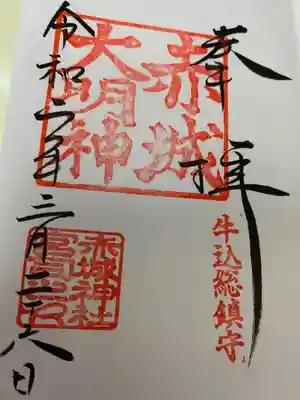 奉拝
赤城
大明神
牛込総鎮守
赤城神社
令和二年三月二十八日